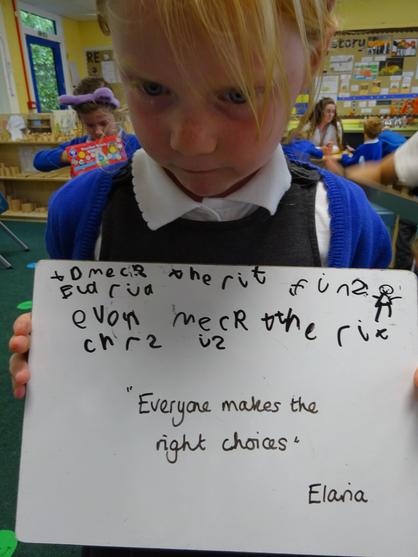 RE
story
to mecR the rit fin2
Eud riud
evon mecR tthe rix
chr2 i2
"Everyone makes the
right choices"
Elaria